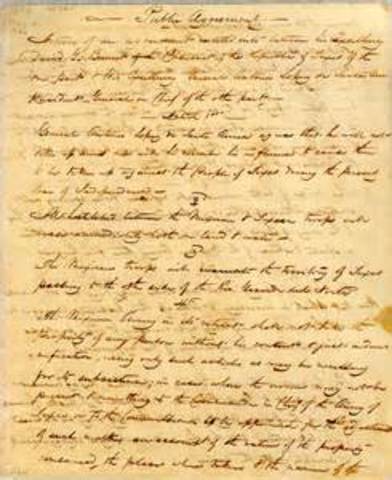 Public Agreement
Articles of an agreement entered into between his Excellency
David G. Burnet of the Republic of Texas of the
one part & His Excellency General Antonio Lopez de Santa Anna
President General in Chief of the
Article 1st
General Antonio Lopez de Santa Anna agrees that he will not
take up arms nor will he his influence to cause them
to be taken up against the People of Texas during the present
War of Independence
2
All hostilities between the Mexican & Texan troops will
cease immediately both on land & water
3
The Mexican troops will evacuate the territory of Texas
passing to the other side of the Rio Grande del Norte
4
The Mexican Army in its retreat shall not take the
property of any person without his consent & just
using only such articles as may be necessary
for its subsistence, in cases where the owner may not be
present & to the Commander in Chief of the Army of
Texas or to the Commissioner to be appointed for the adjustment
of such matters an account of the value of the property
consumed, the place where taken & the name of the